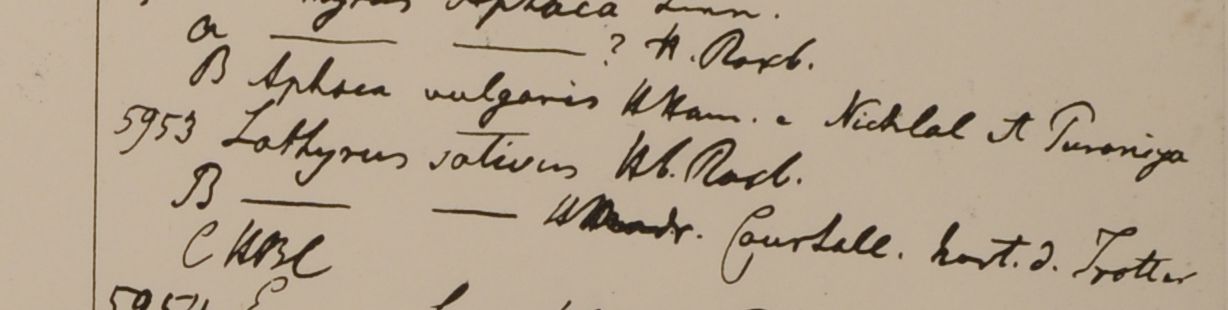 Aphaca Linn.
a — — ? H. Roxb.
B Aphaca vulgaris HHam. e Nichlal et Puraniya
5953 Lathyrus sativus Hb. Roxb.
B — — Courtall. hort. d. Trotter
C HBC
5954